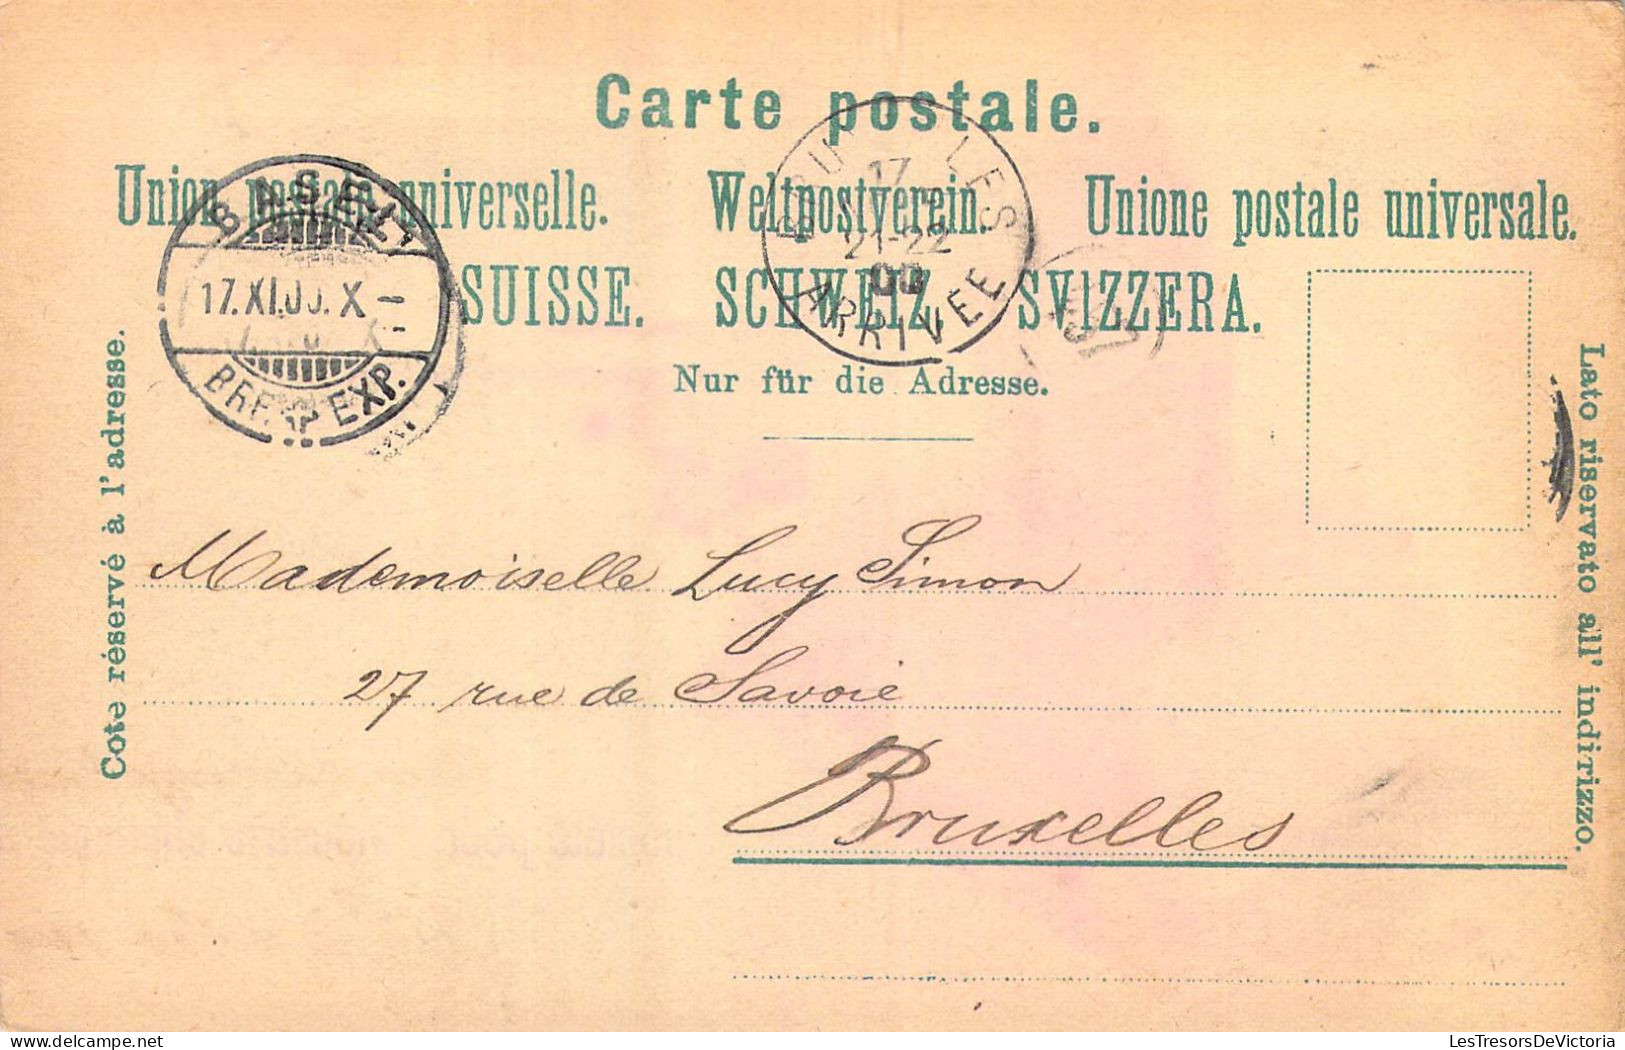 Carte postale.
Union postale universelle. Weltpostverein. Unione postale universale.
SUISSE. SCHWEIZ. SVIZZERA.
Nur für die Adresse.
Côté réservé à l'adresse.
Lato riservato all' indirizzo.
BASEL
17.XI.00.X-
BRF. EXP.
BRUXELLES
17
21-22
00
ARRIVEE
Mademoiselle Lucy Simon
27 rue de Savoie
Bruxelles
LesTresorsDeVictoria